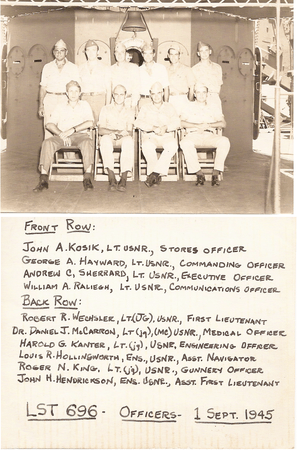 FRONT ROW:
JOHN A. KOSIK, LT. USNR., STORES OFFICER
GEORGE A. HAYWARD, LT. USNR., COMMANDING OFFICER
ANDREW C, SHERRARD, LT. USNR., EXECUTIVE OFFICER
WILLIAM A. RALIEGH, LT. USNR., COMMUNICATIONS OFFICER
BACK ROW:
ROBERT R. WECHSLER, LT(JG). USNR., FIRST LIEUTENANT
DR. DANIEL J. MCCARRON, LT (jg), (MC) USNR., MEDICAL OFFICER
HAROLD G. KANTER, LT. (jg), USNR, ENGINEERING OFFICER
LOUIS R. HOLLINGWORTH, ENS., USNR., ASST. NAVIGATOR
ROGER N. KING. LT. (jg), USNR., GUNNERY OFFICER
JOHN H. HENDRICKSON, ENS. USNR., ASST. FIRST LIEUTENANT
LST 696- OFFICERS- 1 SEPT. 1945